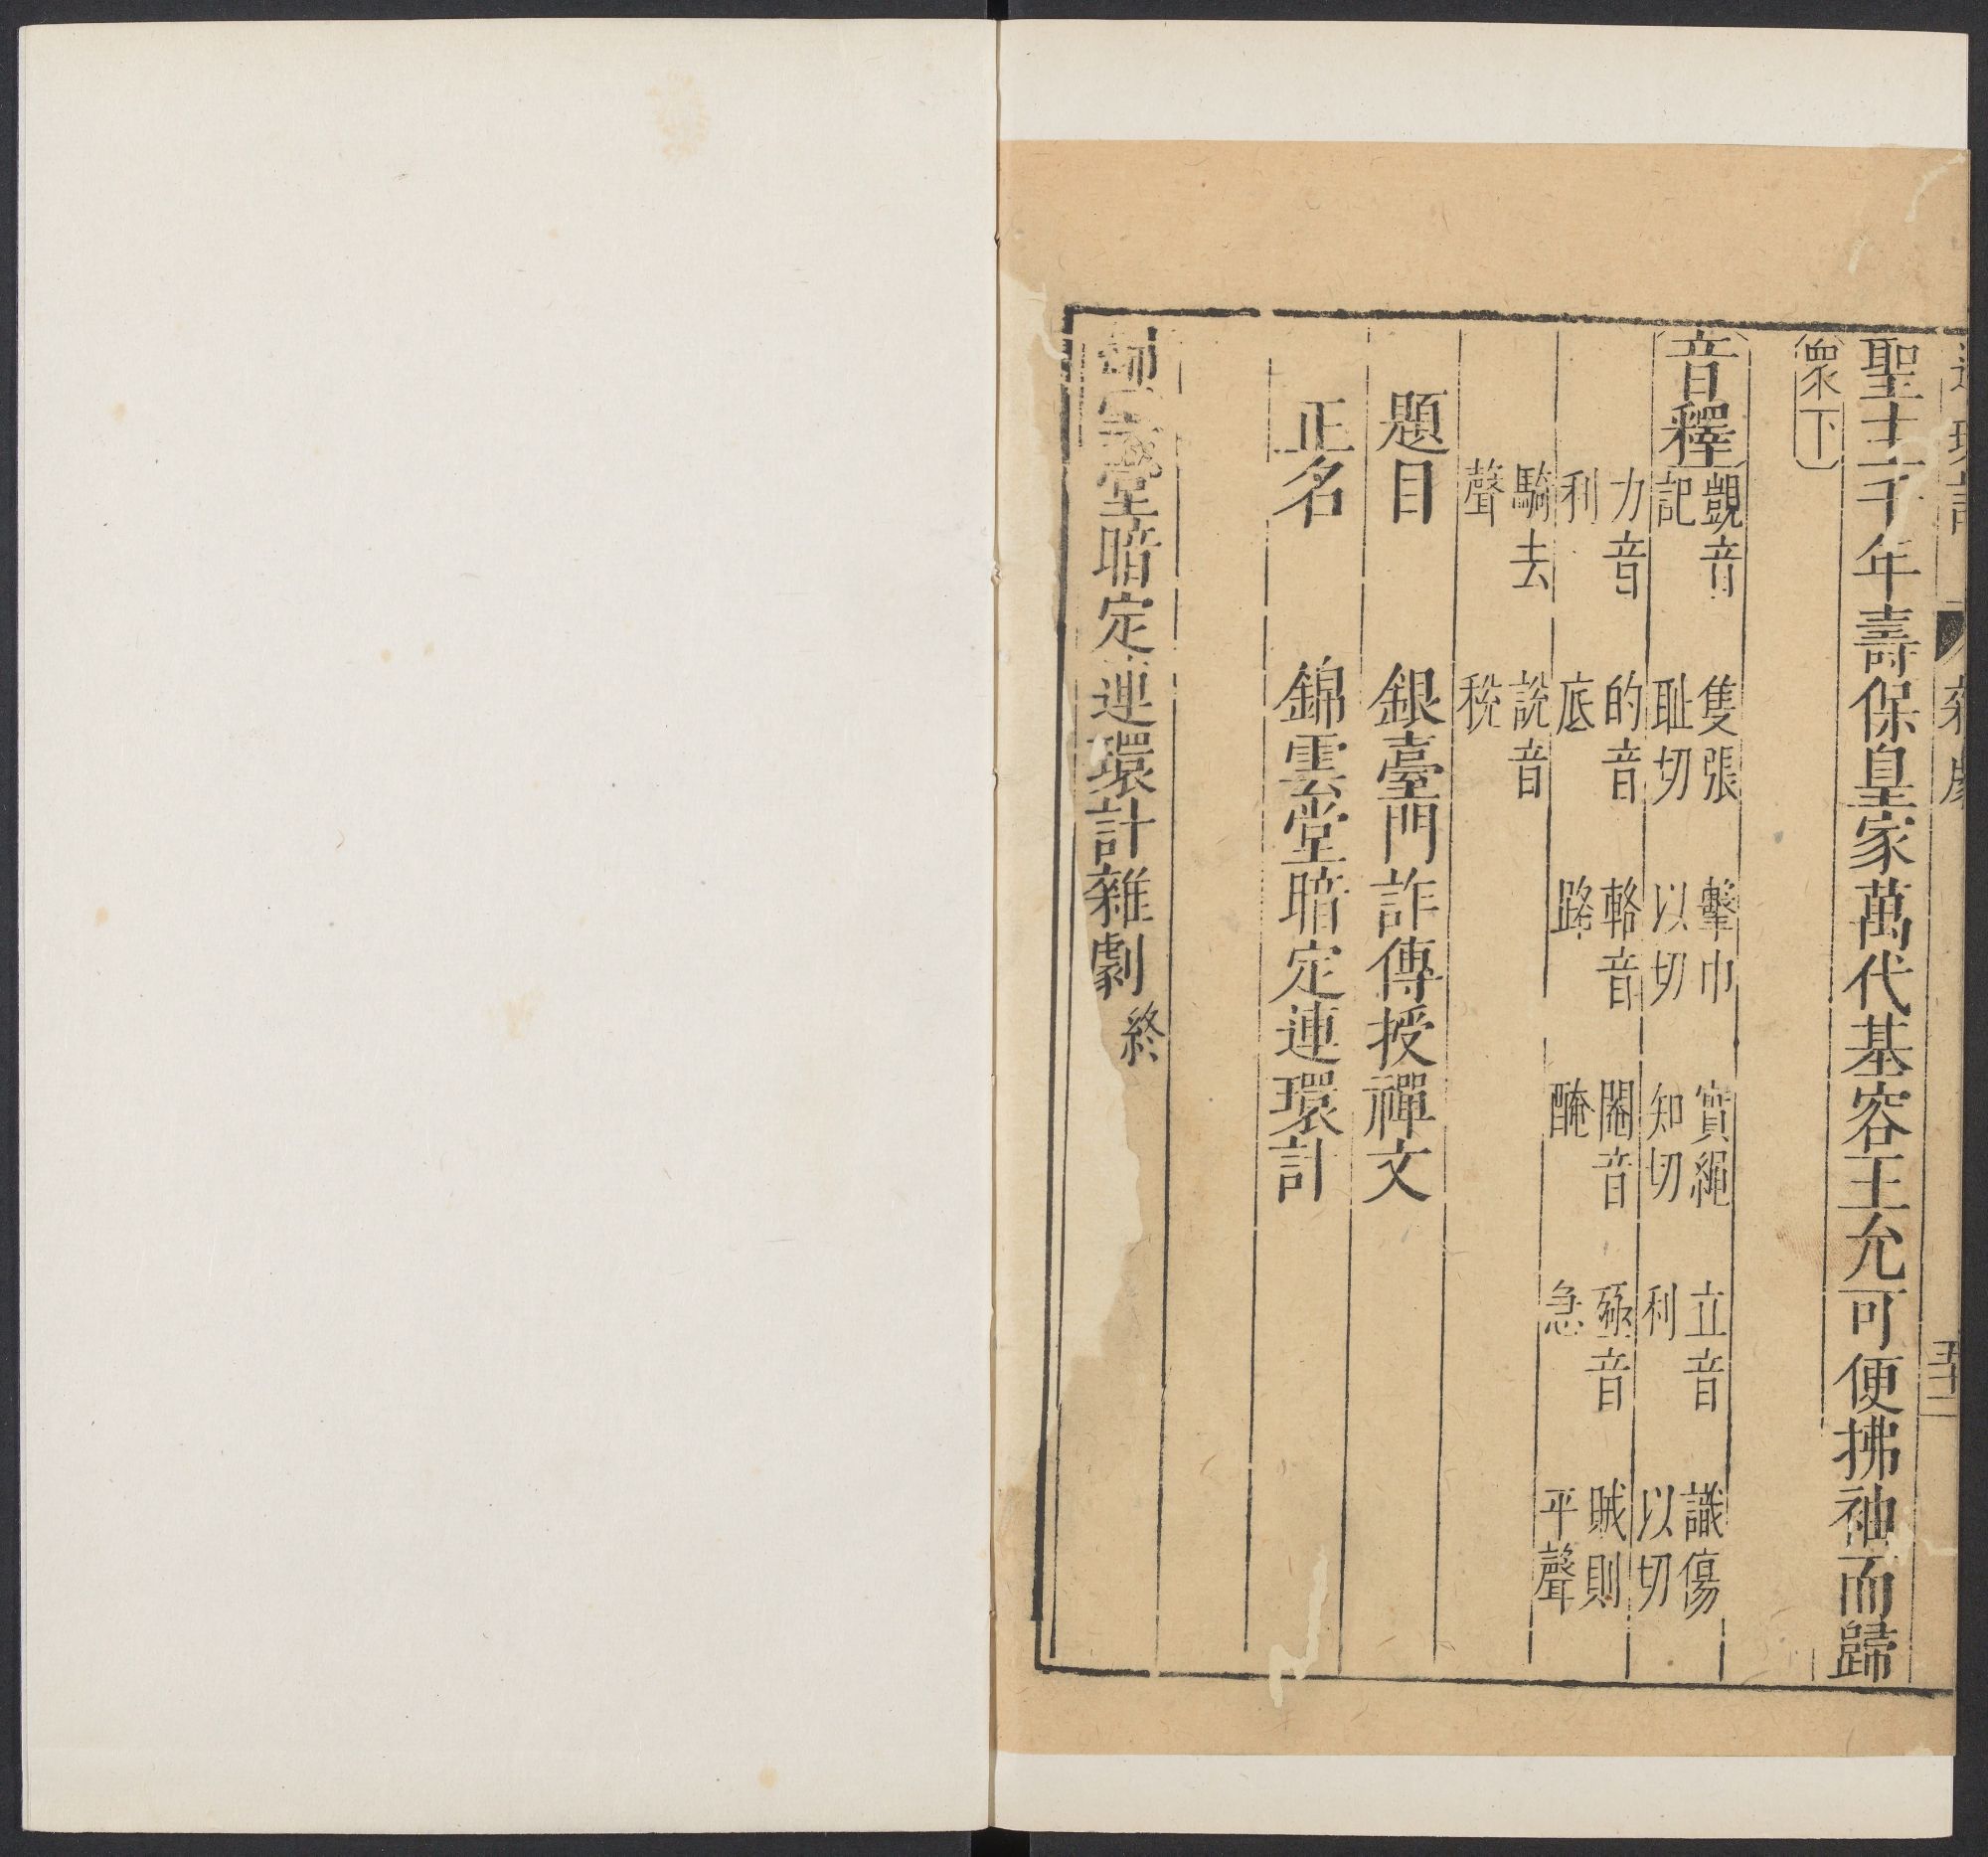 連環計 雜劇
聖主千年壽保皇家萬代基容王允可便拂袖而歸
眾下
音釋 覬音記 隻張耻切 擊巾以切 實繩知切 立音利 識傷以切
力音利 的音底 輅音路 閹音醃 殛音急 賊則平聲
騎去聲 說音稅
題目 銀臺門詐傳授禪文
正名 錦雲堂暗定連環計
堂暗定連環計雜劇 終